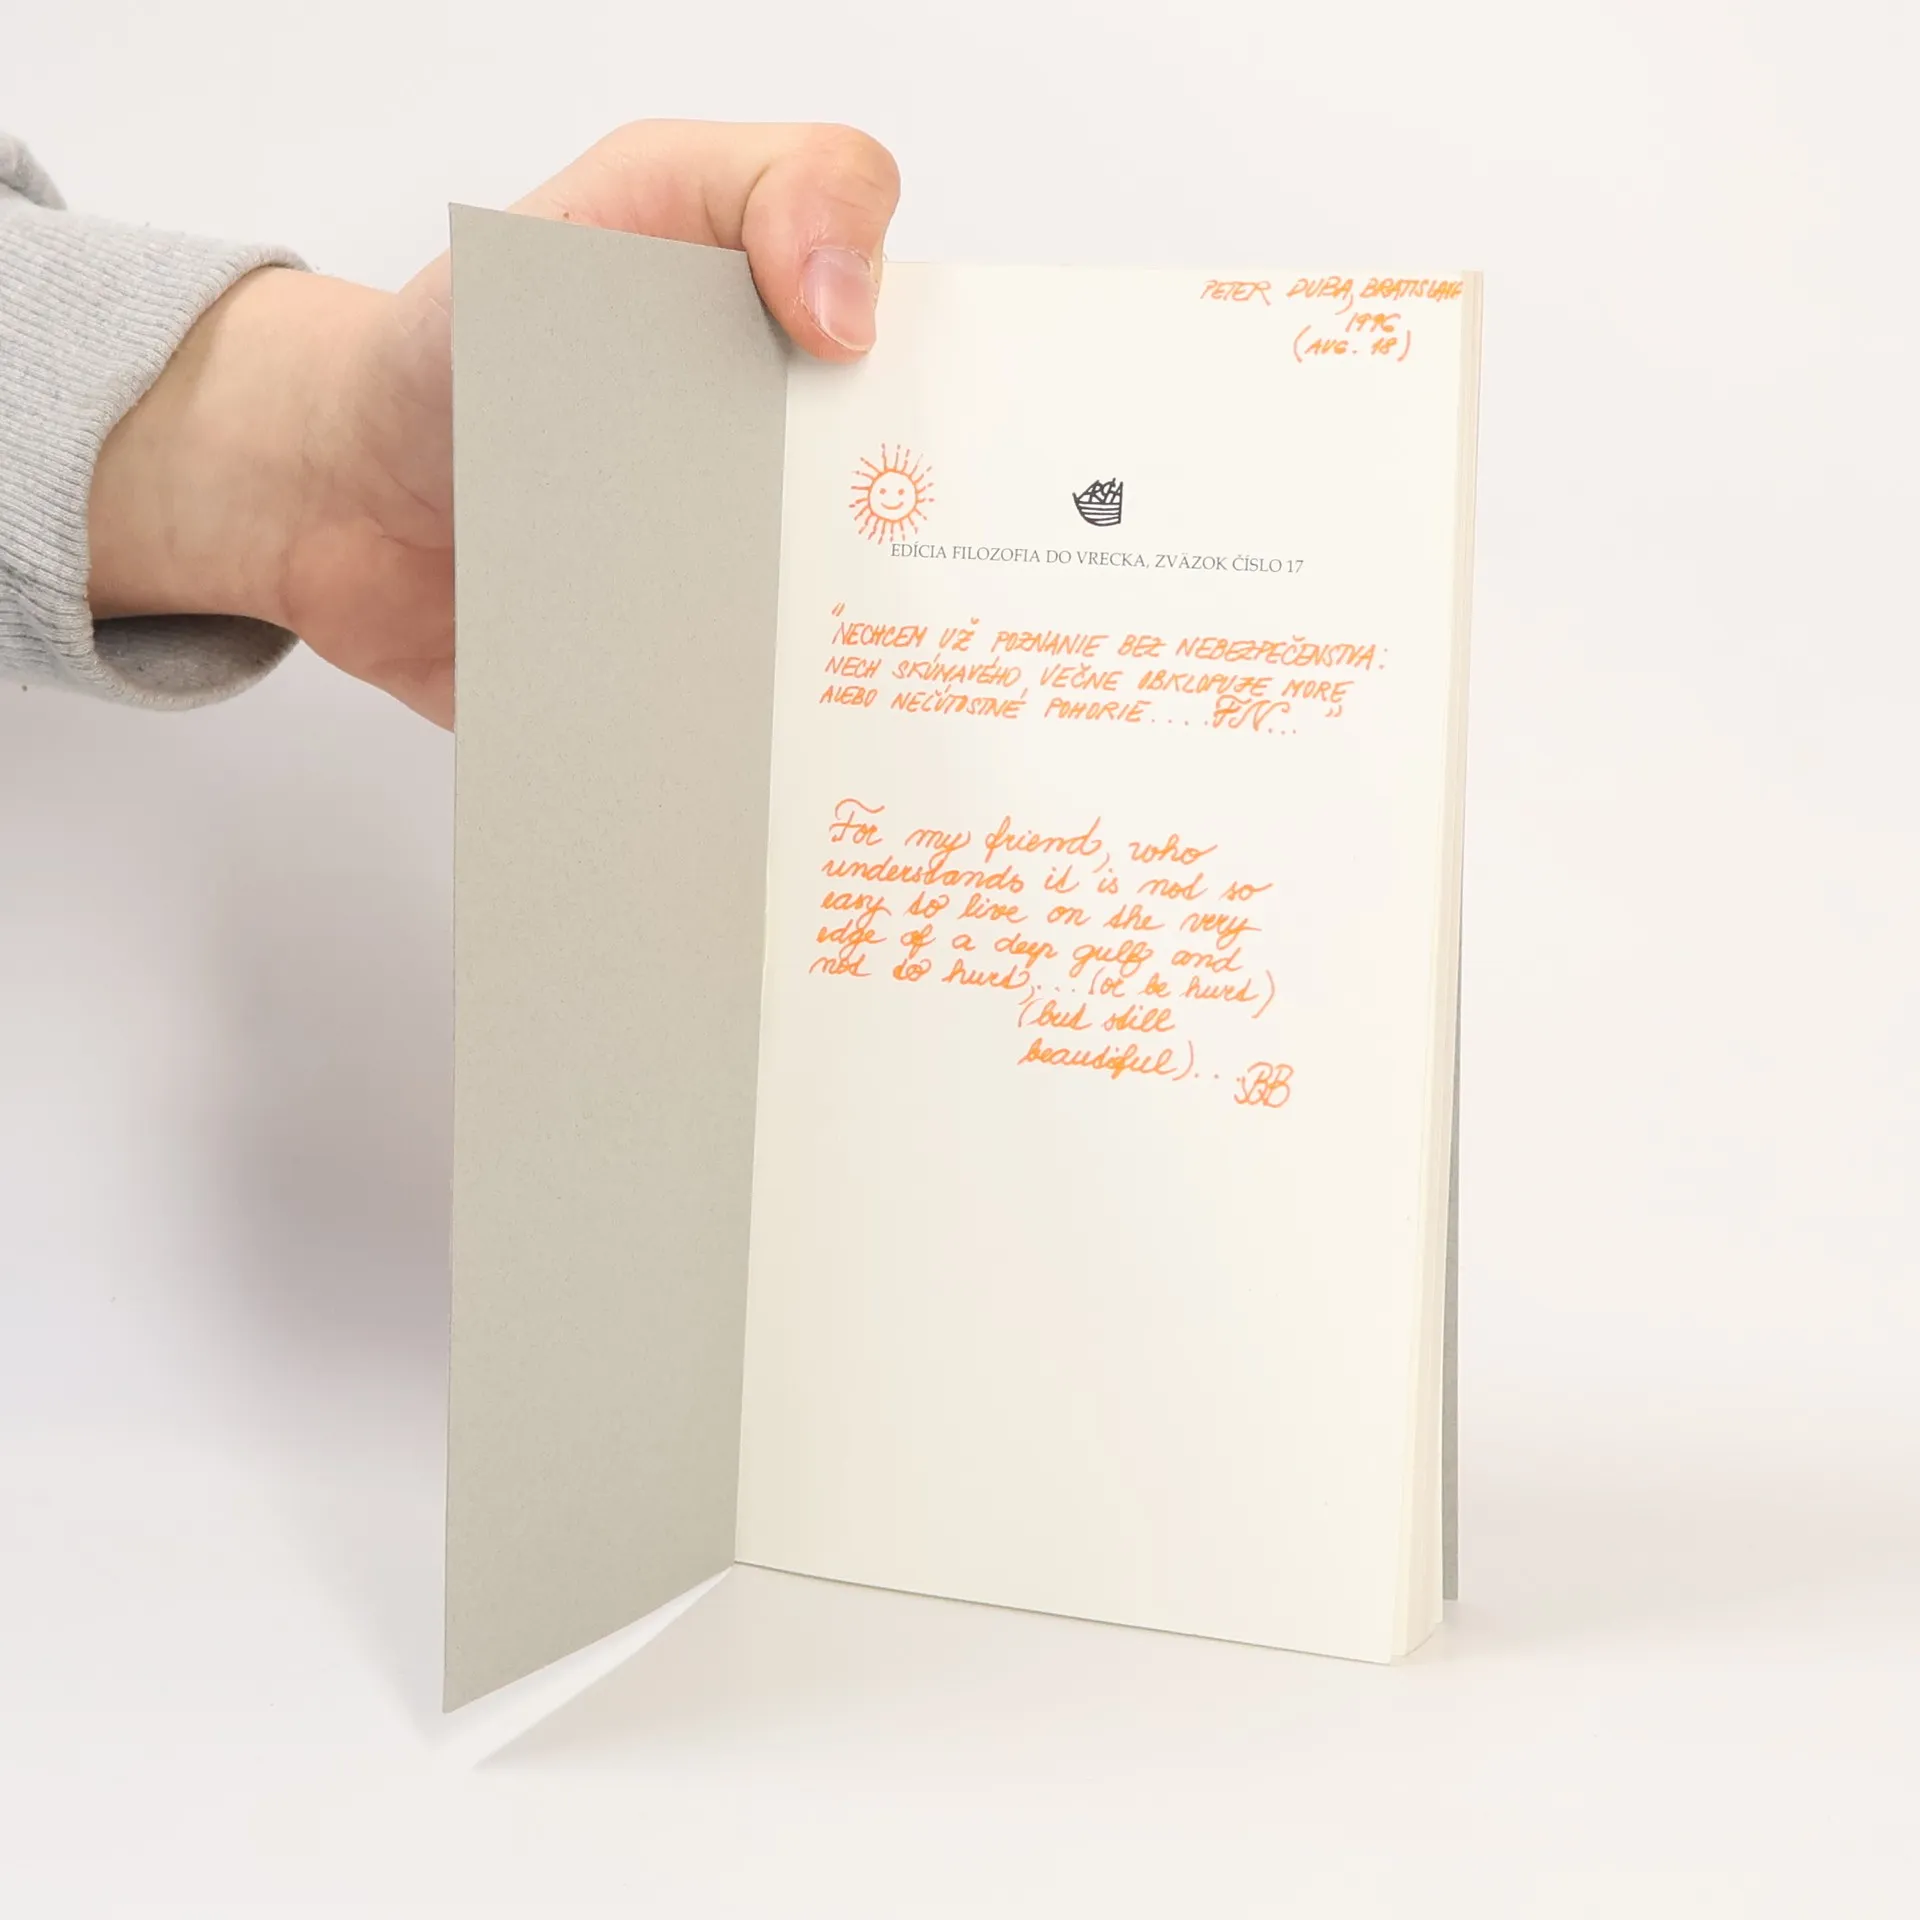 PETER DUBA, BRATISLAVA
1996
(AUG. 18)
ARCHA
EDÍCIA FILOZOFIA DO VRECKA, ZVÄZOK ČÍSLO 17
"NECHCEM UŽ POZNANIE BEZ NEBEZPEČENSTVA:
NECH SKÚMAVÉHO VEČNE OBKLOPUJE MORE
ALEBO NEĽÚTOSTNÉ POHORIE.... FN..."
For my friend, who
understands it is not so
easy to live on the very
edge of a deep gulf and
not to hurt,... (or be hurt)
(but still
beautiful)... BB